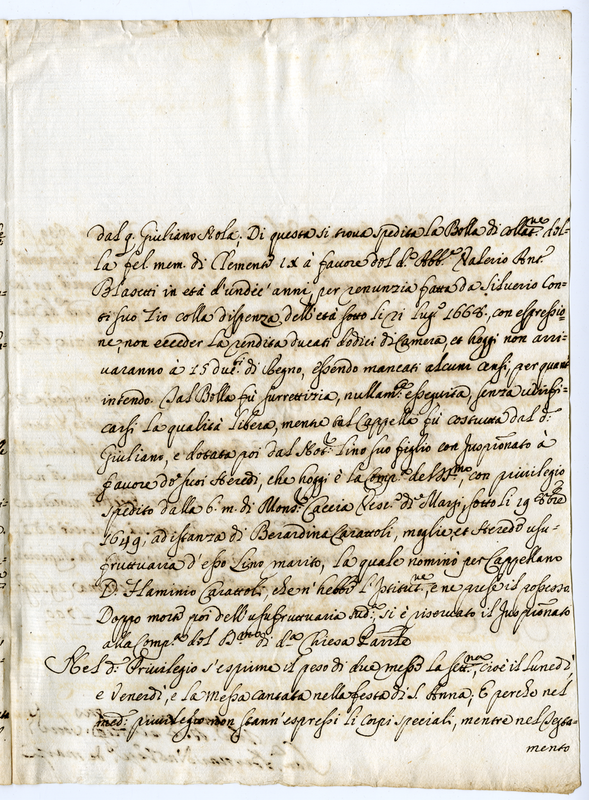 dal q. Giuliano Nola; Di questa si trova spedita la Bolla di collat.ne del-
la fel. mem. di Clemente IX à favore del d.o Abb.e Valerio Ant.o
Blasetti in età d'undec'anni, per renunzia fatta da Silverio Con-
ti suo Zio colla dispenza dell'età sotto li 21 lug.o 1668. con espressio-
ne, non ecceder la rendita ducati dodici di Camera, et hoggi non arri-
varanno à 15 duc.ti di Regno, essendo mancati alcuni censi, per quant
intendo. Tal Bolla fù surrettizia, nullam.te esseguita, senza verifi-
carsi la qualità libera, mentre tal Cappella fù costrutta dal d.o
Giuliano, e dotata poi dal Not.o Lino suo figlio con Juspronato a
favore de suoi Heredi, che hoggi è la Comp.a del SS.mo, con privilegio
spedito dalla b. m. di Mons.r Caccia Vesc.o de Marsi, sotto li 19 8bre
1649, ad istanza di Berardina Carattoli, moglie, et Herede usu-
fruttuaria d'esso Lino marito, la quale nominò per Cappellano
D. Flaminio Carattoli, che n'hebbe l'Istitut.ne, e ne prese il possesso
Doppo morte poi dell'usufruttuaria sud.a, si è riservato il Juspronato
alla Comp.a del di d.a Chiesa Parr.le
Nel d.o Privilegio s'esprime il peso di due messe la sett.na, cioè il Lunedì
e Venerdì, e la Messa cantata nella festa di S. Anna, E perche nel
med.o privilegio non stann'espressi li Corpi speciali, mentre nel Testa-
mento